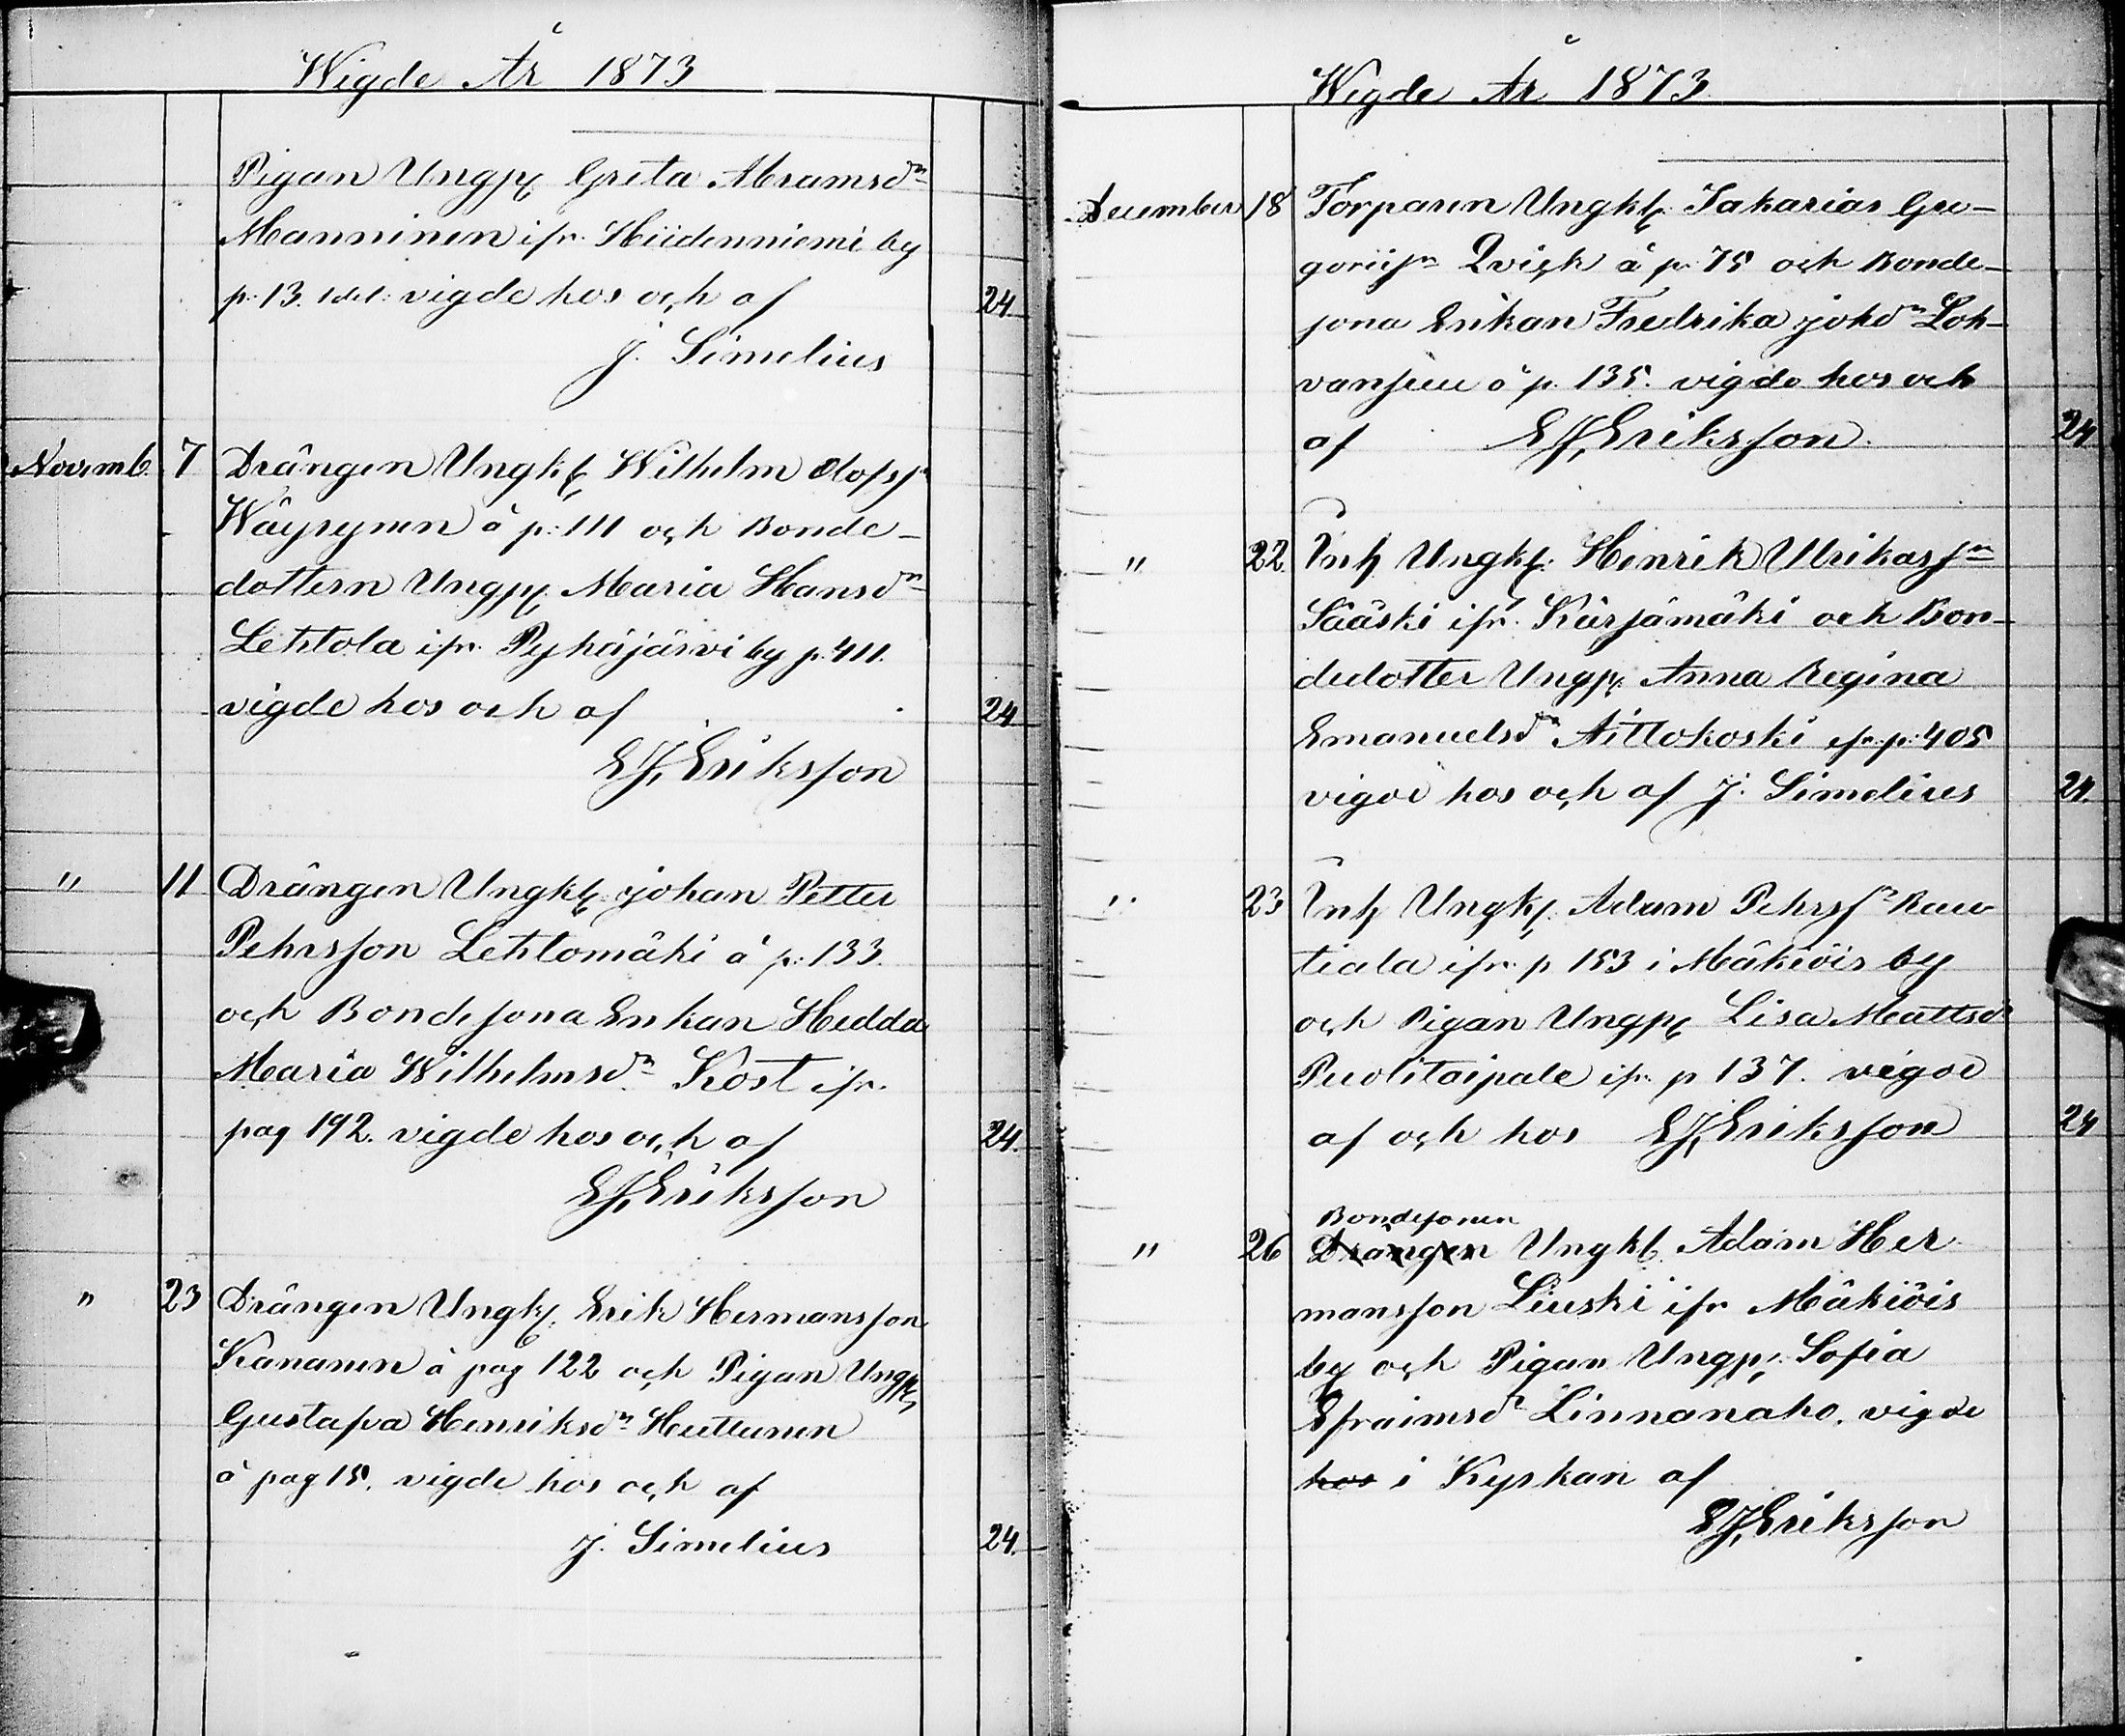 Wigde År 1873
Pigan Ungp. Greta Abramsdr
Manninen ifr. Hiidenniemi by
p: 13. 1 del: vigde hos och af
24.
J. Simelius
Novemb. 7 Drängen Ungk. Wilhelm Olofss
Wäyrynen å p: 111 och Bonde-
dottern Ungp. Maria Hansdr
Lehtola ifr. Pyhäjärvi by p. 411.
vigde hos och af
24
EJ, Eriksson
" 11 Drängen Ungk. Johan Petter
Pehrsson Lehtomäki å p: 133.
och Bondesona Enkan Hedda
Maria Wilhelmsdr Kost ifr.
pag 192. vigde hos och af
24.
EJ, Eriksson
" 23 Drängen Ungk. Erik Hermansson
Kananen å pag 122 och Pigan Ungp.
Gustafva Henriksdr Huttunen
å pag 15. vigde hos och af
J. Simelius
24.
Wigde År 1873
December 18 Torparen Ungk. Sakarias Gre-
goriisn Qvick å p: 75 och Bonde-
sona Enkan Fredrika Johdr Loh-
vansuu å p. 135. vigde hos och
af EJ, Eriksson.
24
" 22. Inh Ungk. Henrik Ulrikassn
Sääski ifr. Kärsämäki och Bon-
dedotter Ungp. Anna Regina
Emanuelsdr Aittokoski ifr. p: 405
vigde hos och af J. Simelius
24.
" 23 Inh Ungk. Adam Pehrssn Rau
tiala ifr. p 153 i Mäkiöis by
och Pigan Ungp. Lisa Mattsdr
Puolitaipale ifr. p 137. vigde
af och hos EJ, Eriksson
24
Bondesonen
" 26 Drängen Ungk. Adam Her
mansson Liuski ifr Mäkiöis
by och Pigan Ungp. Sofia
Efraimsdr Linnanaho. vigde
hos i Kyrkan af
EJ, Eriksson